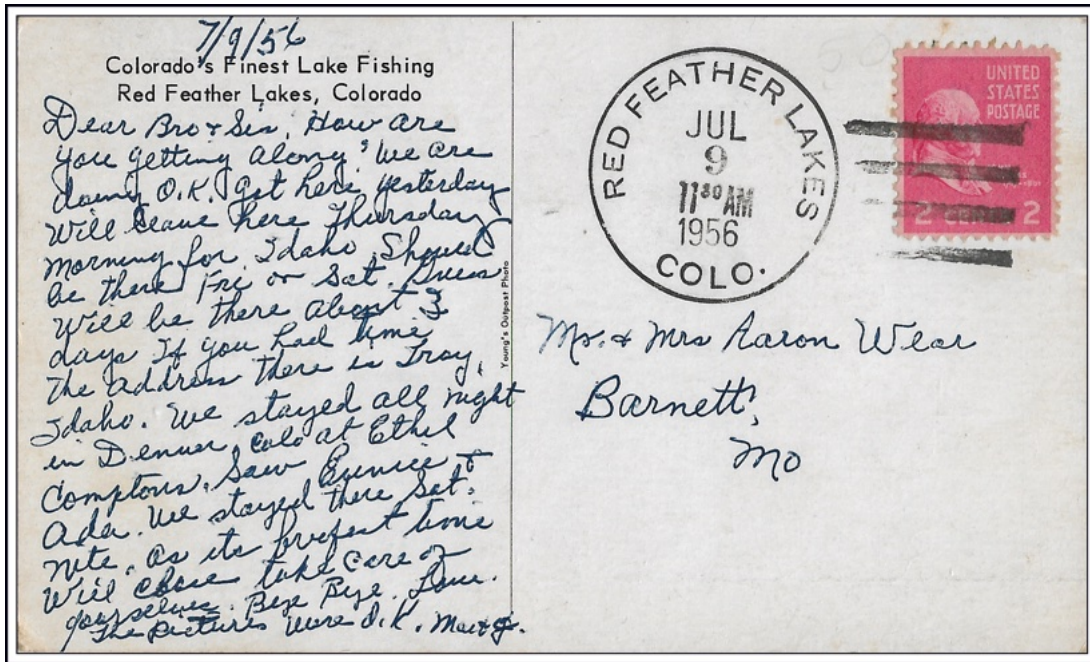 7/9/56
Colorado's Finest Lake Fishing
Red Feather Lakes, Colorado
Dear Bro & Sis, How are
you getting along? We are
doing O.K. Got here yesterday
Will leave here Thursday
morning for Idaho. Should
be there Fri or Sat. Guess
will be there about 3
days If you had time
the address there is Troy,
Idaho. We stayed all night
in Denver, Colo at Ethel
Comptons. Saw Eunice &
Ada. We stayed there Sat.
nite. as its time
Will close take care of
yourselves. Bye Bye. Love.
The Pictures were O.K.
Young's Outpost Photo
RED FEATHER LAKES
JUL
9
11 30 AM
1956
COLO.
UNITED
STATES
POSTAGE
2 CENTS 2
Mr. & Mrs Aaron Wear
Barnett,
Mo